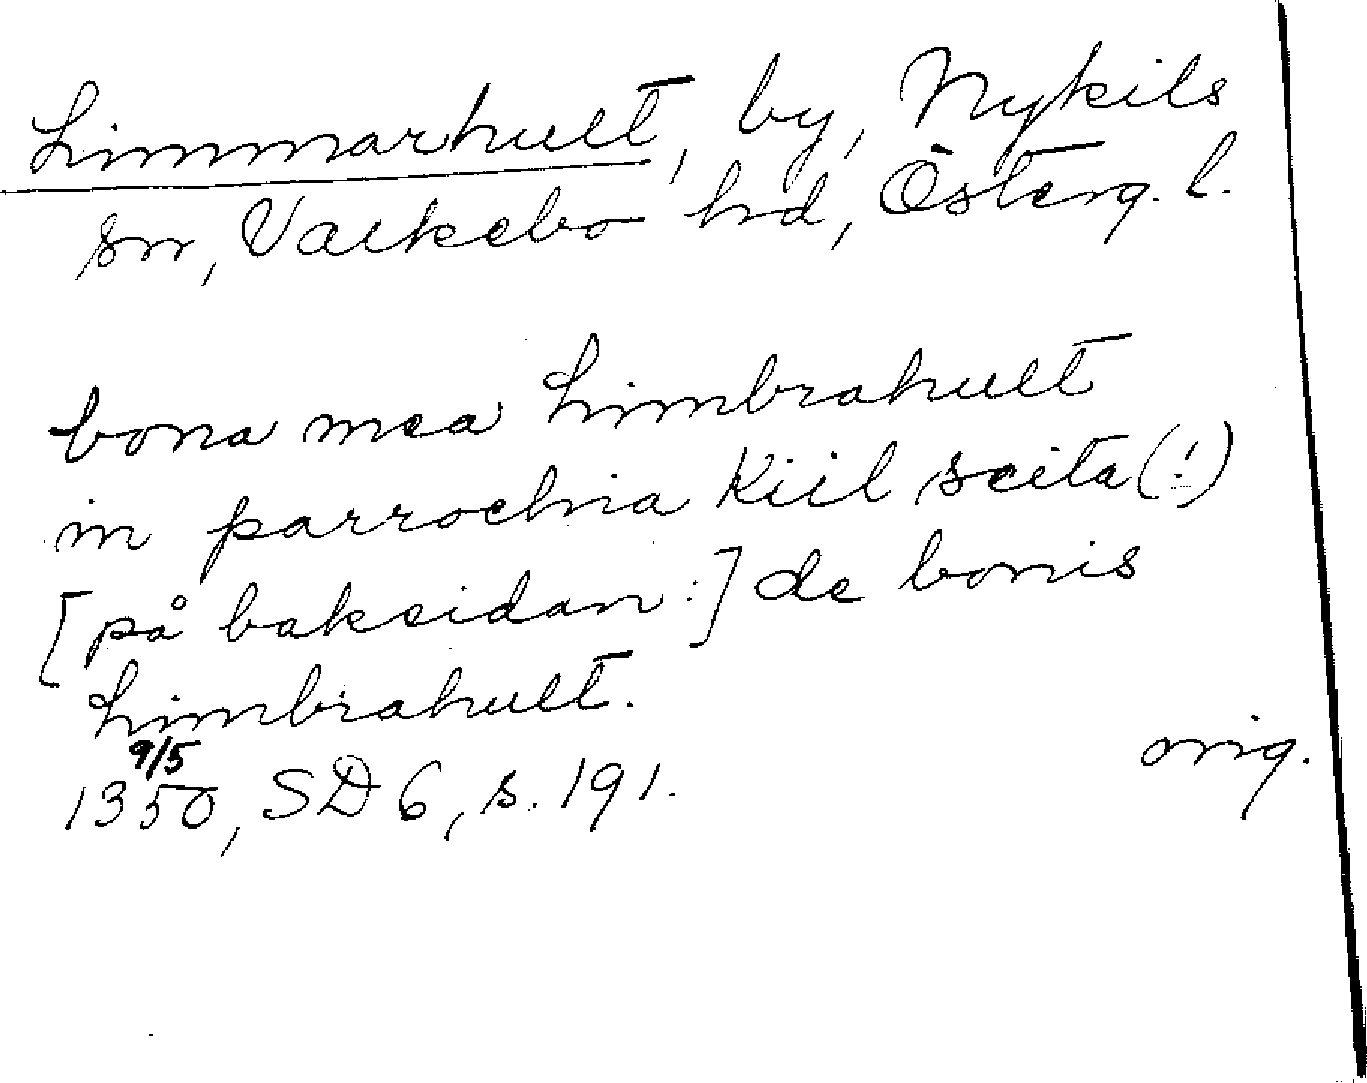 Limmarhult, by, Nykils
sn, Valkebo hd, Österg. l.
bona mea Limbrahult
in parrochia Kiil scita(!)
[på baksidan:] de bonis
Limbrahult.
9/5
1350, SD 6, s. 191.
orig.